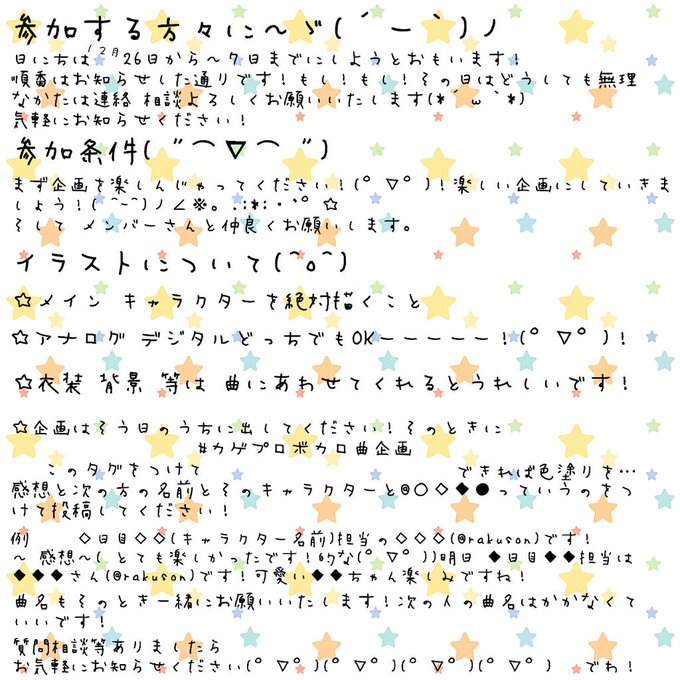 参加する方々に〜ゞ(´ー｀)ノ
日にちは12月26日から〜7日までにしようとおもいます！
順番はお知らせした通りです！もし！もし！その日はどうしても無理
なかたは連絡 相談よろしくお願いいたします(*´ω｀*)
気軽にお知らせください！
参加条件(〃⌒▽⌒〃)
まず企画を楽しんじゃってください！(°▽°)！楽しい企画にしていきま
しょう！(^-^)ノ∠※。.:*:・'°☆
そして メンバーさんと仲良くお願いします。
イラストについて(^o^)
☆メイン キャラクターを絶対描くこと
☆アナログ デジタルどっちでもOKーーーーー！(°▽°)！
☆衣装 背景 等は 曲にあわせてくれるとうれしいです！
☆企画はそう日のうちに出してください！そのときに
#カゲプロボカロ曲企画
このタグをつけて できれば色塗りを…
感想と次の方の名前とそのキャラクターと@○◇◆●っていうのをつ
けて投稿してください！
例 ◇日目◇◇(キャラクター名前)担当の◇◇◇(@rakuson)です！
〜 感想〜(とても楽しかったです！的な(°▽°))明日 ◆日目◆◆担当は
◆◆◆さん(@rakuson)です！可愛い◆◆ちゃん楽しみですね！
曲名もそのとき一緒にお願いいたします！次の人の曲名はかかなくて
いいです！
質問相談等ありましたら
お気軽にお知らせください(°▽°)(°▽°)(°▽°)(°▽°) でわ！